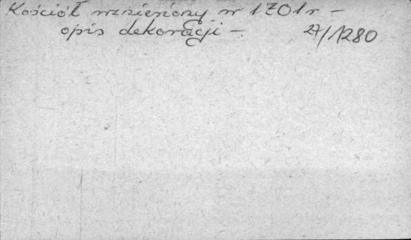 Kościół wzniesiony w 1701r -
opis dekoracji - 27/1280